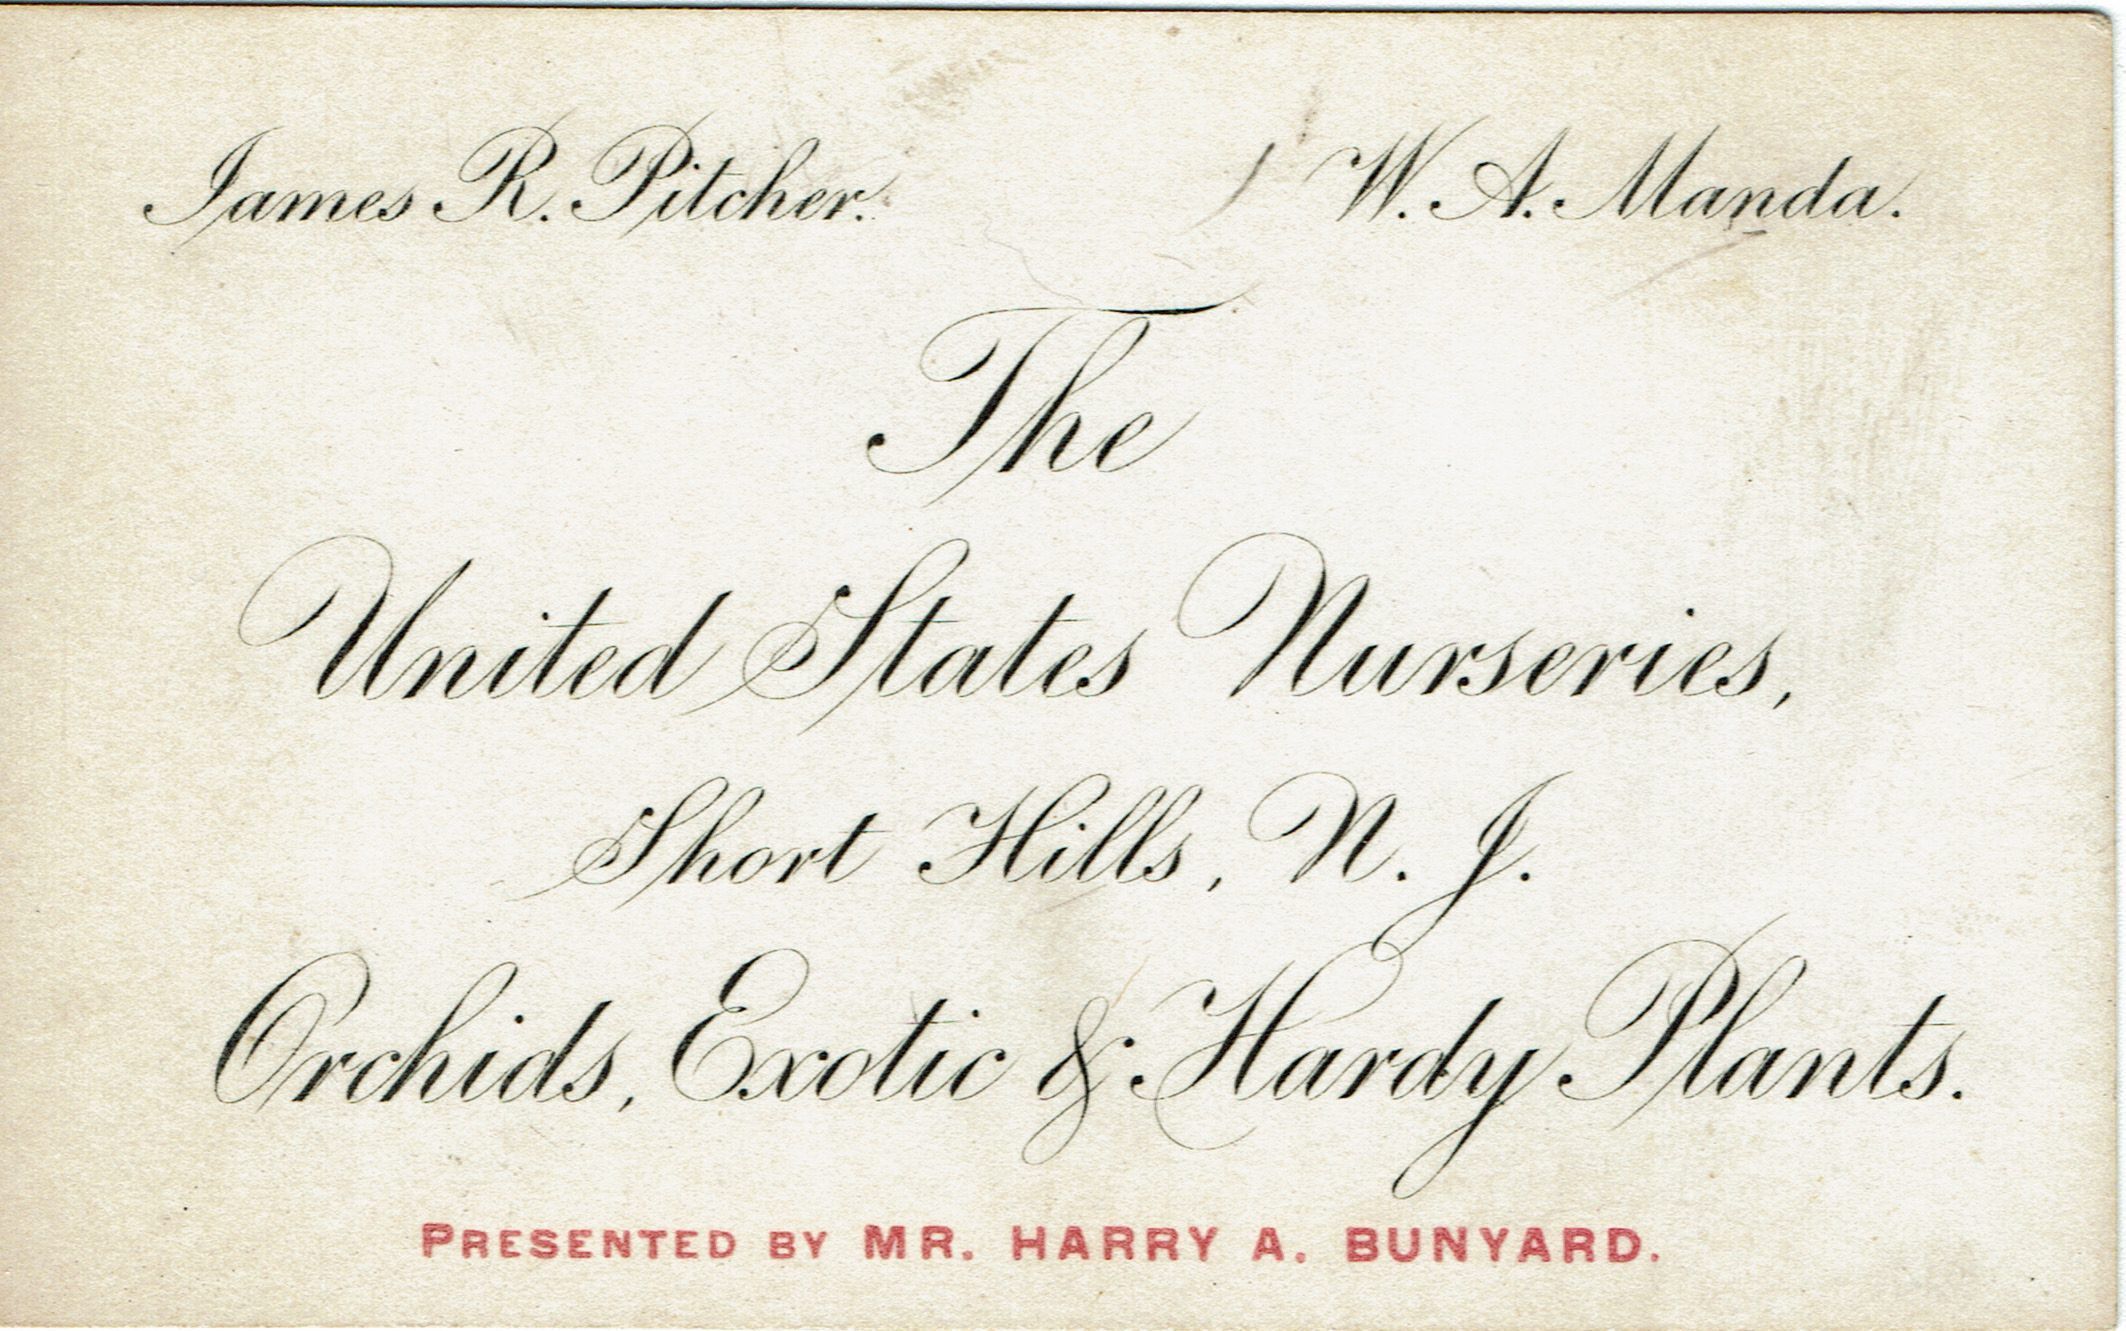 James R. Pitcher. W. A. Manda.
The
United States Nurseries,
Short Hills, N. J.
Orchids, Exotic & Hardy Plants.
PRESENTED BY MR. HARRY A. BUNYARD.